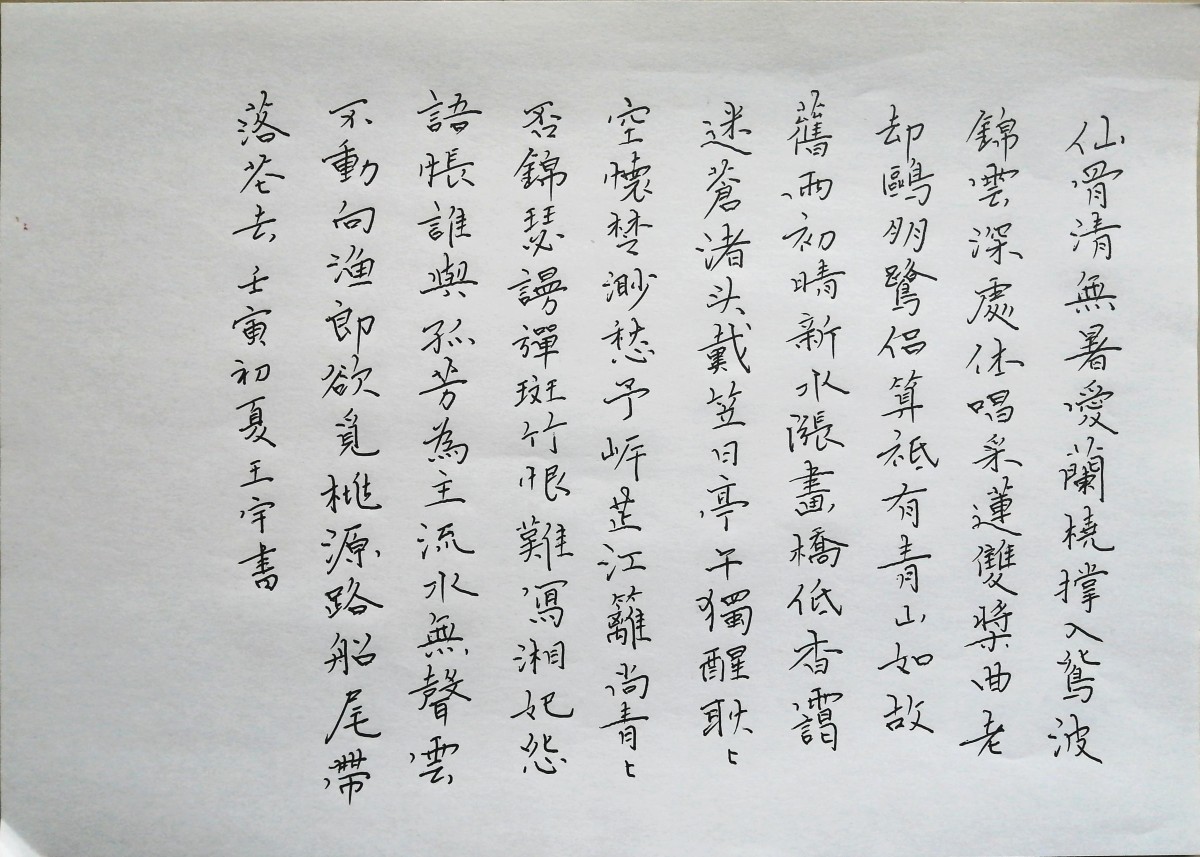 仙骨清無暑愛蘭橈撐入鴛波
錦雲深處休唱采蓮雙槳曲老
却鷗朋鷺侶算祗有青山如故
舊雨初晴新水漲畫橋低香靄
迷蒼渚头戴笠日亭午獨醒耿〻
空懷楚渺愁予岸芷江籬尚青〻
否錦瑟謾彈斑竹恨難寫湘妃怨
語悵誰與孤芳為主流水無聲雲
不動向漁郎欲覓桃源路船尾帶
落花去壬寅初夏王宇書